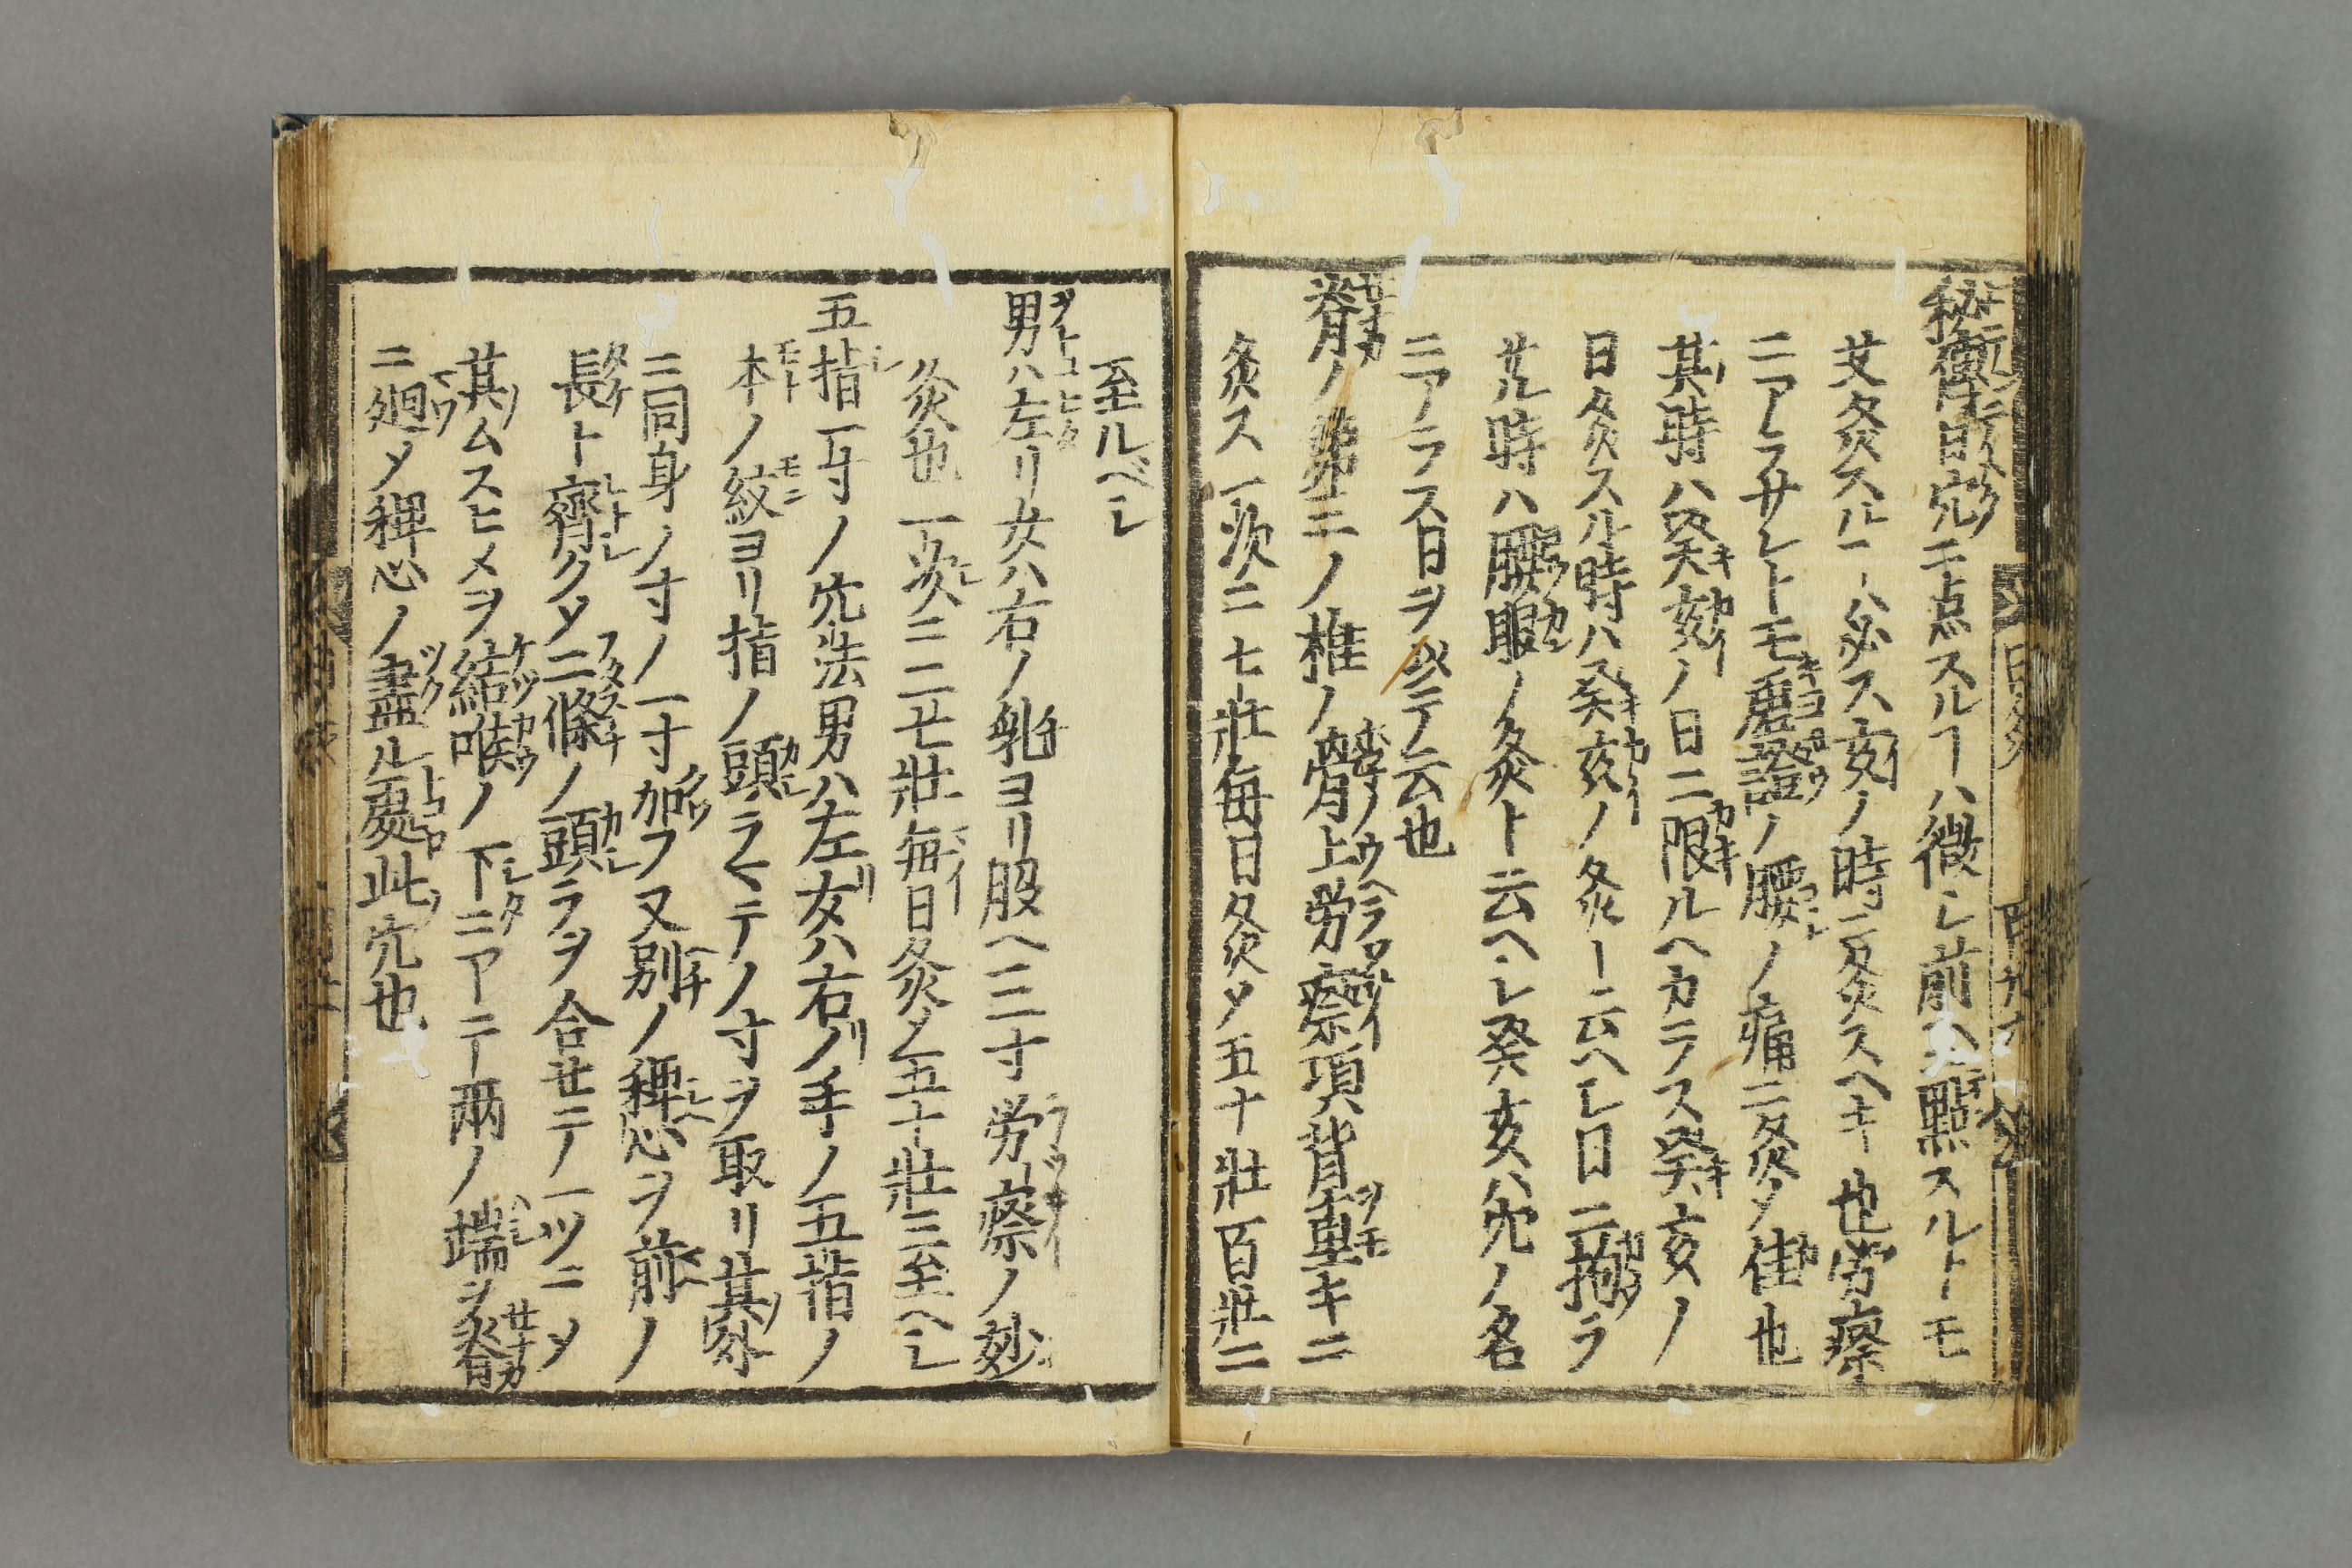 秘術曰穴ニ点スルヿハ微シ前ヘ點スルトモ
艾灸スルヿハ必ス亥ノ時ニ灸スヘキ也労瘵
ニアラサレトモ虚證ノ腰ノ痛ニ灸メ佳也
其時ハ癸亥ノ日ニ限ルヘカラス癸亥ノ
日灸スル時ハ癸亥ノ灸ト云ヘシ日ニ拘ラ
サル時ハ腰眼ノ灸ト云ヘシ癸亥ハ穴ノ名
ニアラス日ヲ以テ云也
脊ノ第三ノ椎ノ骨上労瘵項背重キニ
灸ス一次ニ七壯毎日灸メ五十壯百壯ニ
至ルベシ
男ハ左リ女ハ右ノ乳ヨリ股ヘ三寸労瘵ノ妙
灸也一次ニ二七壯毎日灸メ五十壯ニ至ヘシ
五指一寸ノ穴法男ハ左リ女ハ右ノ手ノ五指ノ
本ノ紋ヨリ指ノ頭ラマテノ寸ヲ取リ其外
ニ同身ノ寸ノ一寸加フ又別ノ稗心ヲ前ノ
長ト齊クメ二條ノ頭ラヲ合セテ一ツニメ
其ムスヒメヲ結喉ノ下ニアテ兩ノ端ヲ脊
ニ廻メ稗心ノ盡ル處此穴也